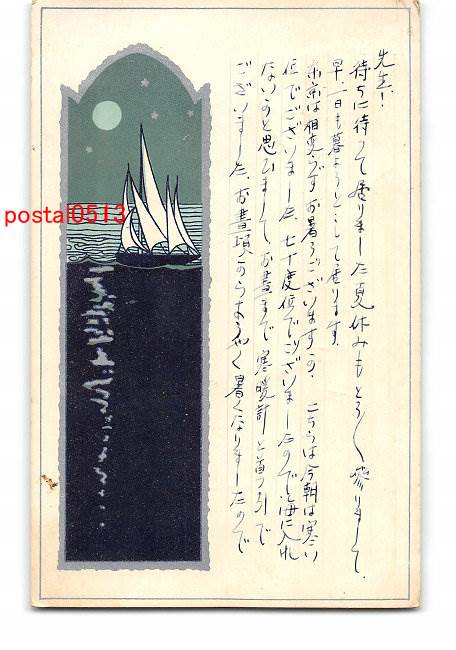 先生！
待ちに待つて居りました夏休みもとう〱参りまして、
早、一日も暮ようとして居ります。
東京は相変らずお暑うございますの、こちらは今朝は寒い
位でございました、七十度位でございましたので海に入れ
ないかと思ひまして、お昼まで寒暖計と首つ引で
ございました、お昼頃からようやく暑くなりましたので
postal0513